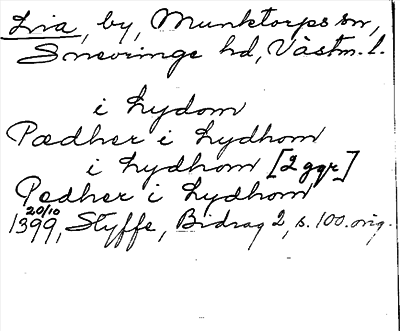 Lia, by, Munktorps sn,
Snevringe hd, Västm. l.
i Lydom
Pædher i Lydhom
i Lydhom [2 ggr]
Pedher i Lydhom
20/10
1399, Styffe, Bidrag 2, s. 100. orig.